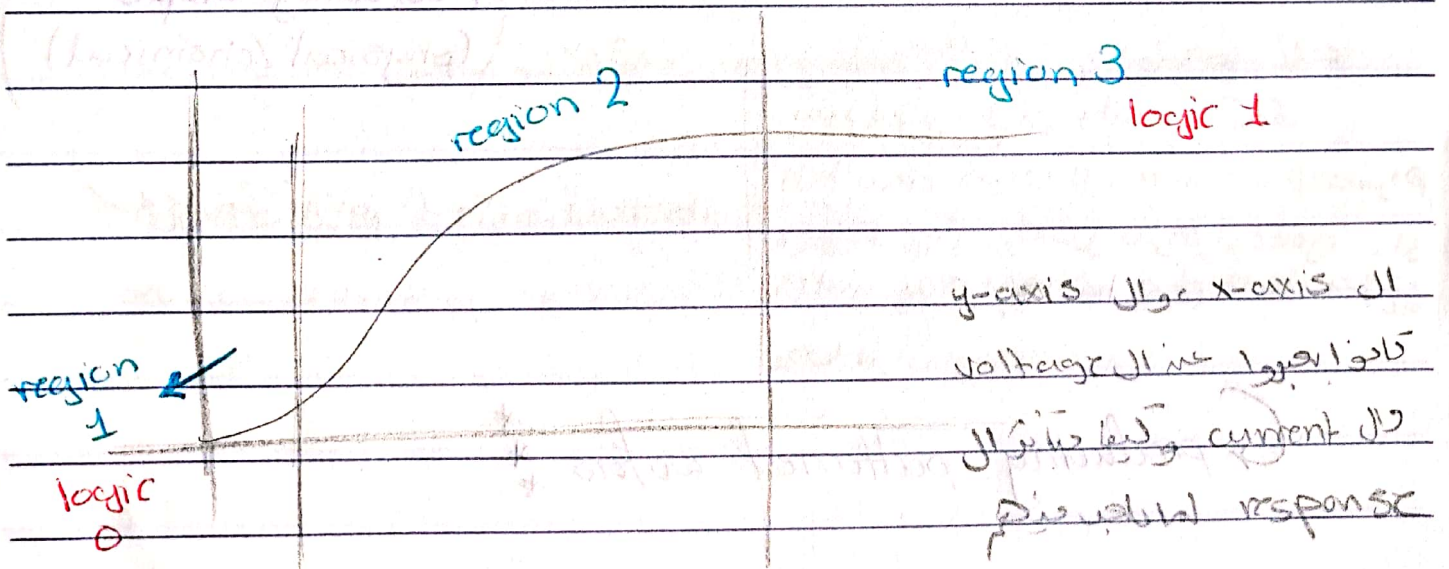 region 2
region 3
logic 1
region
1
logic
0
ال x-axis وال y-axis
كانوا يعبروا عن ال voltage
وال current وكيف ال
response